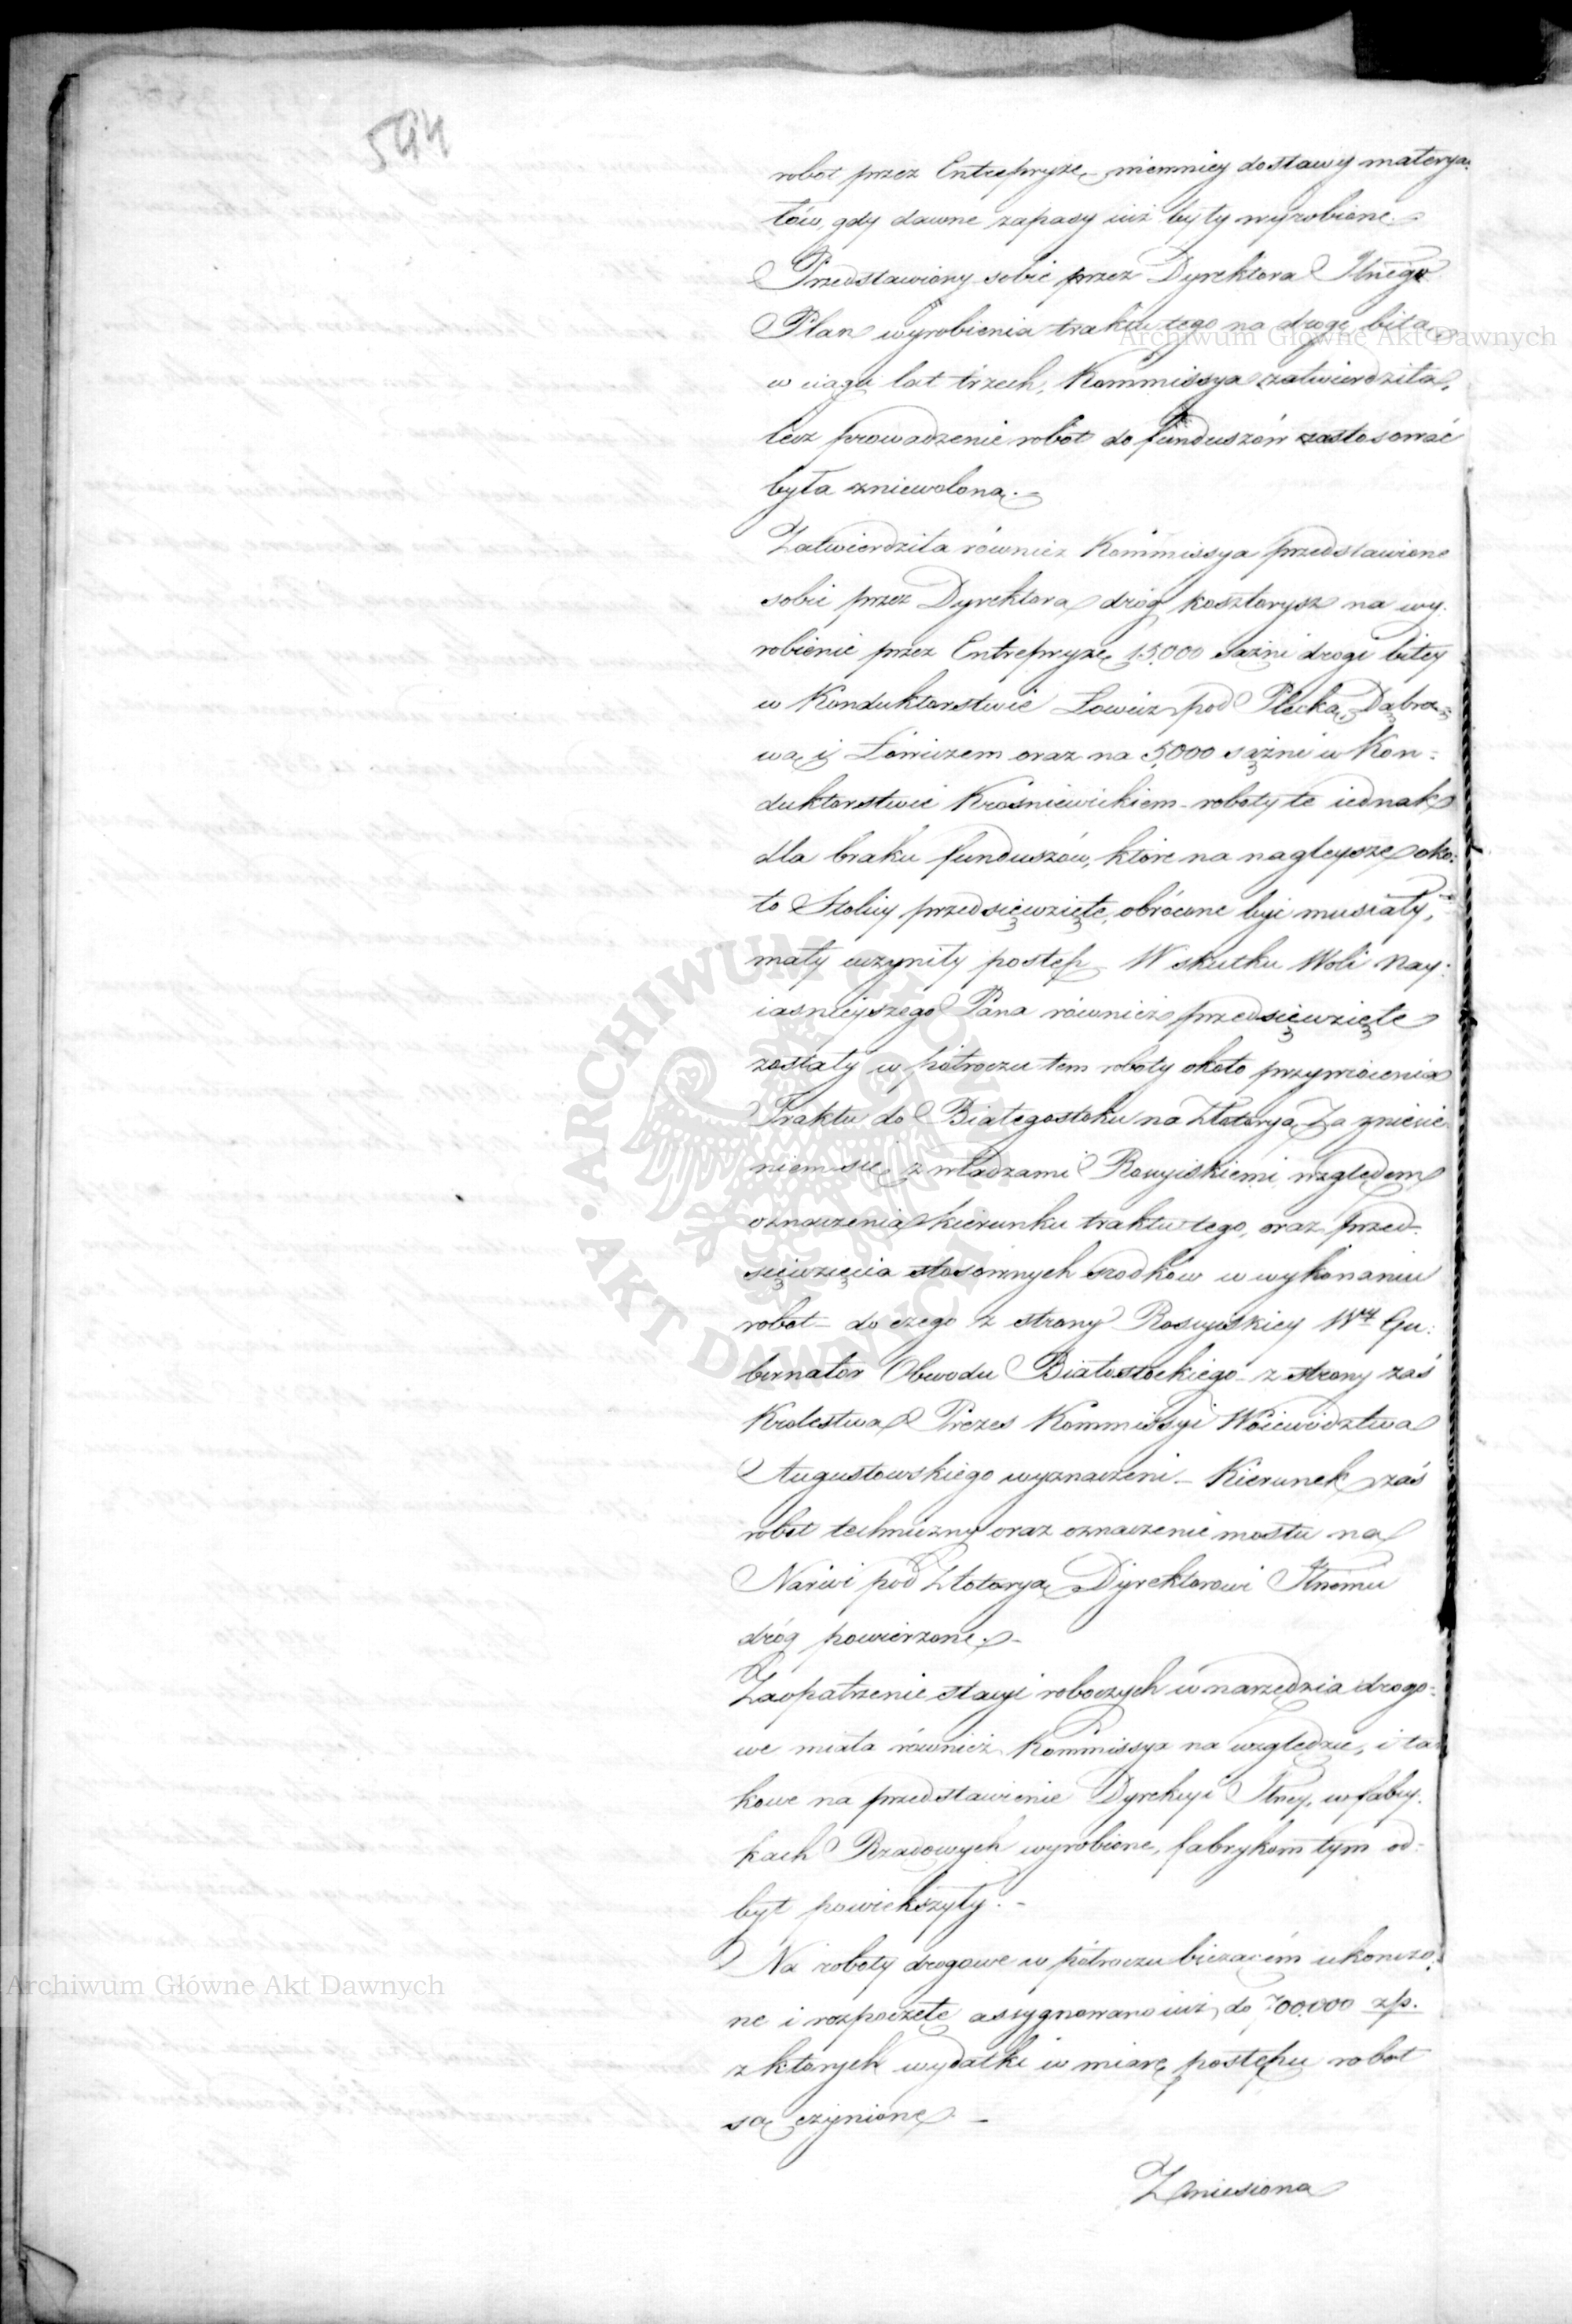 594
robot przez Entrepryzę niemniey dostawy materya-
łów, gdy dawne zapasy iuż były wyrobione.-
Przedstawiony sobie przez Dyrektora Jlnego
Plan wyrobienia traktu tego na drogę bitą
Archiwum Główne Akt Dawnych
w ciągu lat trzech, Kommissya zatwierdziła,
lecz prowadzenie robot do funduszów zastosować
była zniewolona.-
Zatwierdziła również Kommissya przedstawione
sobie przez Dyrektora dróg kosztorysz na wy-
robienie przez Entrepryzę 15000 sążni drogi bitey
w Konduktorstwie Łowicz pod Płecką, Dąbro-
wą i Łowiczem oraz na 5000 sążni w Kon=
duktorstwie Krośniewickiem - roboty te iednak
dla braku funduszów, które na nagleysze oko-
ło Stolicy przedsięwzięte, obrócone być musiały,
mały uczyniły postęp - W skutku Woli Nay-
iasnieyszego Pana również przedsięwzięte
zostały w półroczu tem roboty około przywrócenia
Traktu do Białegostoku na Złotoryą, Za zniesie-
niem się z władzami Rossyiskiemi względem
oznaczenia kierunku traktu tego, oraz przed-
sięwzięcia stosownych srodków w wykonaniu
robot - do czego z strony Rossyiskiey Wny Gu:
bernator Obwodu Białostockiego - z strony zaś
Krolestwa Prezes Kommissyi Woiewództwa
Augustowskiego wyznaczeni. - Kierunek zaś
robot techniczny oraz oznaczenie mostu na
Narwi pod Złotoryą Dyrektorowi Jlnemu
dróg powierzone.-
Zaopatrzenie stacyi roboczych w narzędzia drogo=
we miała również Kommissya na względzie, i ta-
kowe na przedstawienie Dyrekcyi Jlney, w fabry-
kach Rządowych wyrobione, fabrykom tym od-
byt powiększyły. -
Na roboty drogowe w półroczu bieżącem ukończo-
Archiwum Główne Akt Dawnych
ne i rozpoczęte assygnowano iuż do 700.000 zp.
z ktorych wydatki w miarę postępu robot
są czynione -
Zniesiona
ARCHIWUM GŁÓWNE • AKT DAWNYCH •